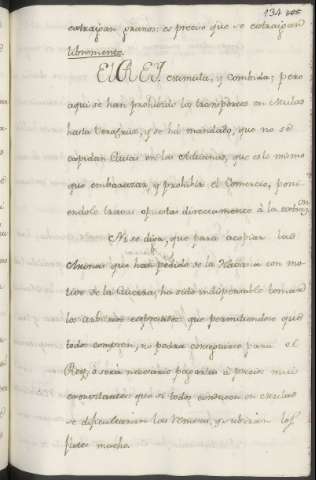 134
extraigan granos: es preciso que se extraigan
libremente.
El REY. exemita, y combida; pero
aqui se han prohivido los transportes en Mulas
hasta Veracruz, y se há mandado, que no se
expidan Guias en las Aduanas, que es lo mismo
que embarazar, y prohibir el Comercio, poni-
endole travas opuestas directamente à la extraⁿ.
Ni se diga, que para acopiar las
Arinas que han pedido de la Havana con mo-
tivo de la Guerra, ha sido indispensable tomar
los arbitrios expresados que permitiendose que
todo compren, no podra conseguirse para el
Rey, ò será necesario pagarlas à precios mui
exorvitantes que si todos conducen en Mulas
se dificultarian las remesas, y subirian los
fletes mucho.